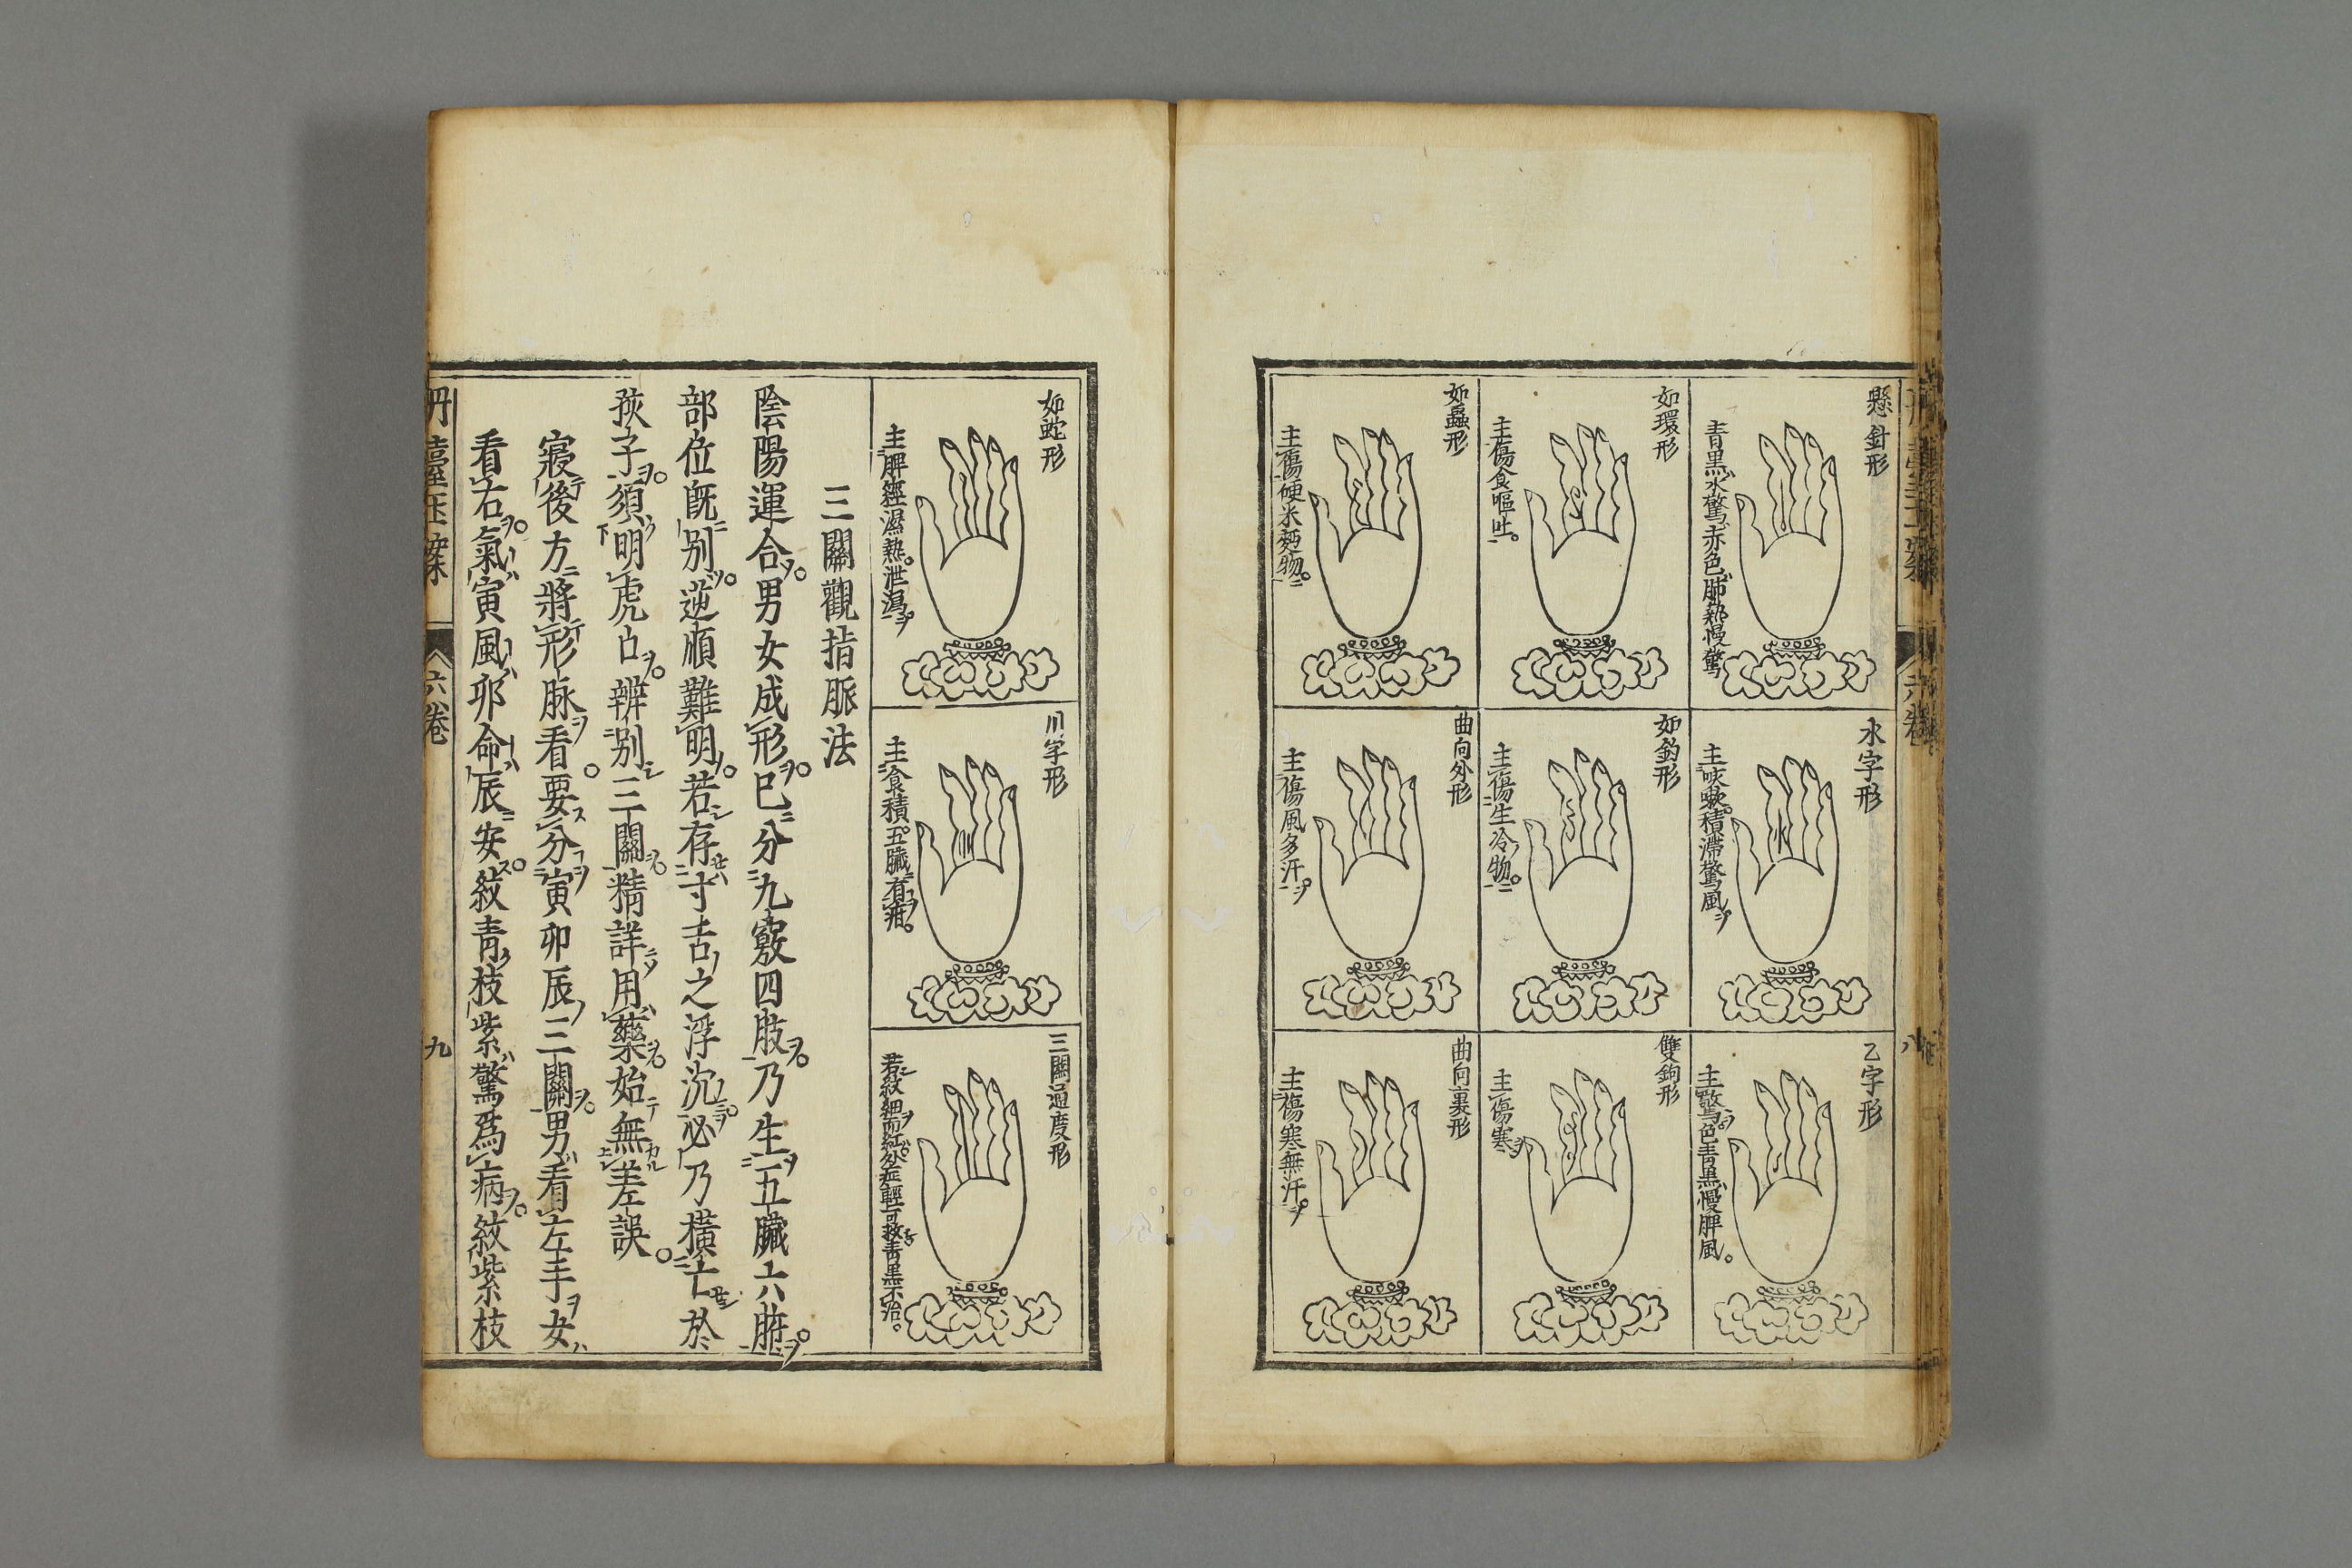 懸針形
青黒水驚赤色肺熱慢驚
水字形
主咳嗽積滯驚風
乙字形
主驚色青黒慢脾風
如環形
主傷食嘔吐
如鈎形
主傷生冷物
雙鉤形
主傷寒
如蟲形
主傷硬米麪物
曲向外形
主傷風多汗
曲向裏形
主傷寒無汗
如蛇形
主脾經濕熱泄瀉
川字形
主食積五臟有疳
三關通度形
若紋細而紅外症輕可救青黒不治
三關觀指脈法
陰陽運合男女成形已分九竅四肢乃生五臟六腑
部位既别逆順難明若存寸舌之浮沉必乃橫亡於
孩子須明虎口辨别三關精詳用藥始無差誤
寢後方將形脉看要分寅卯辰三關男看左手女
看右氣寅風卯命辰安紋靑枝紫驚爲病紋紫枝
丹臺玉案
六卷
九